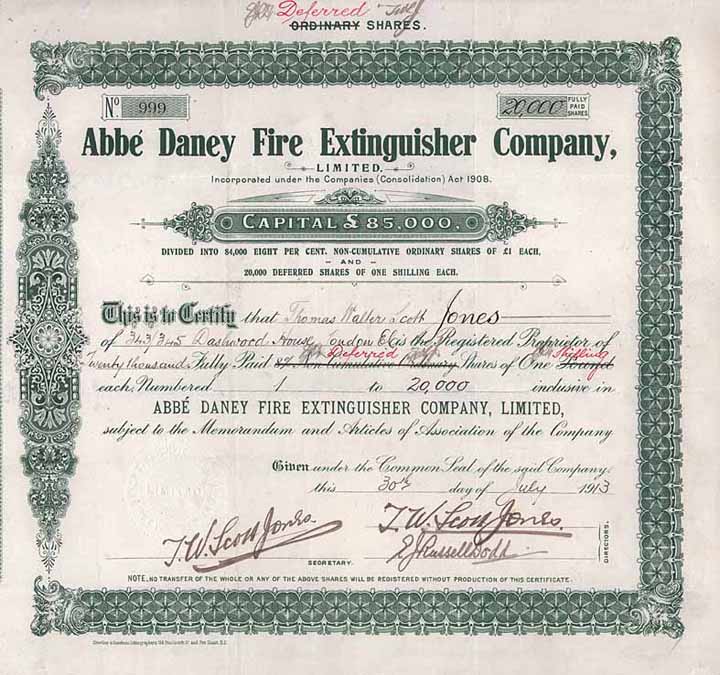 Deferred
ORDINARY SHARES.
No. 999
20,000 FULLY PAID SHARES
Abbé Daney Fire Extinguisher Company,
LIMITED.
Incorporated under the Companies (Consolidation) Act 1908.
CAPITAL £85,000.
DIVIDED INTO 84,000 EIGHT PER CENT. NON-CUMULATIVE ORDINARY SHARES OF £1 EACH,
- AND -
20,000 DEFERRED SHARES OF ONE SHILLING EACH.
This is to Certify that Thomas Walter Scott Jones
of 343/345 Dashwood House, London E.C. is the Registered Proprietor of
Deferred Shilling
Twenty thousand Fully Paid 8% Non Cumulative Ordinary Shares of One Pound
each, Numbered 1 to 20,000 inclusive in
ABBÉ DANEY FIRE EXTINGUISHER COMPANY, LIMITED,
subject to the Memorandum and Articles of Association of the Company
Given under the Common Seal of the said Company.
this 30th day of July 1913
T. W. Scott Jones.
T. W. Scott Jones.
E J Russell Dodd
SECRETARY.
DIRECTORS.
NOTE, NO TRANSFER OF THE WHOLE OR ANY OF THE ABOVE SHARES WILL BE REGISTERED WITHOUT PRODUCTION OF THIS CERTIFICATE.
LIMITED